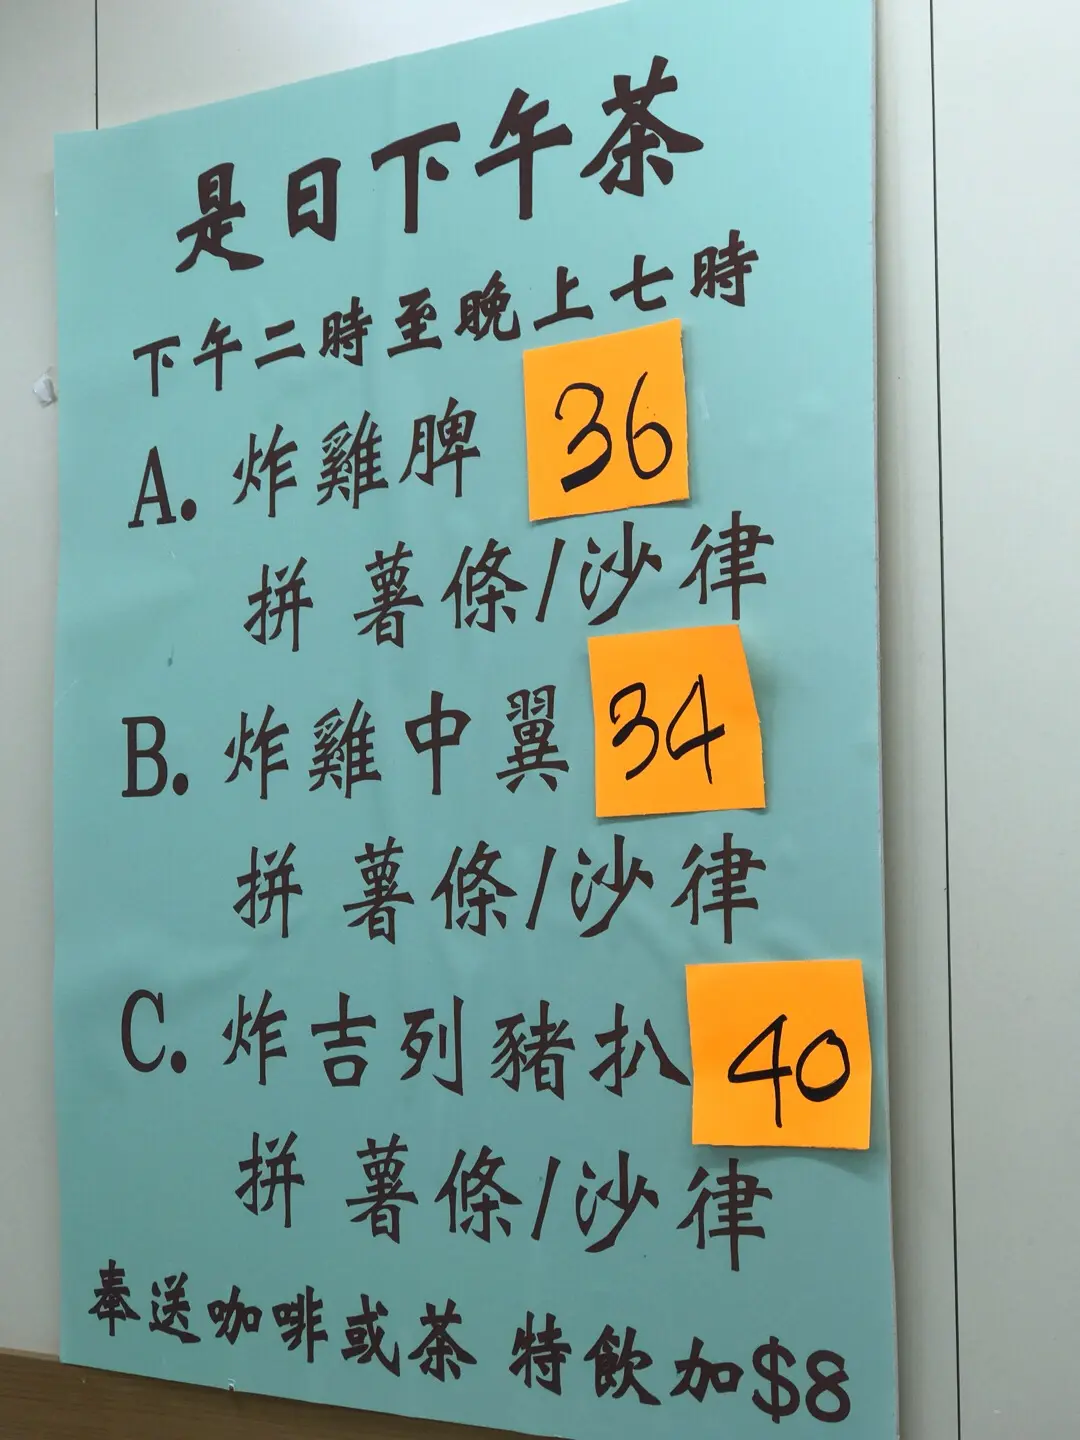 是日下午茶
下午二時至晚上七時
A. 炸雞脾 36
拼 薯條/沙律
B. 炸雞中翼 34
拼 薯條/沙律
C. 炸吉列豬扒 40
拼 薯條/沙律
奉送咖啡或茶 特飲加$8